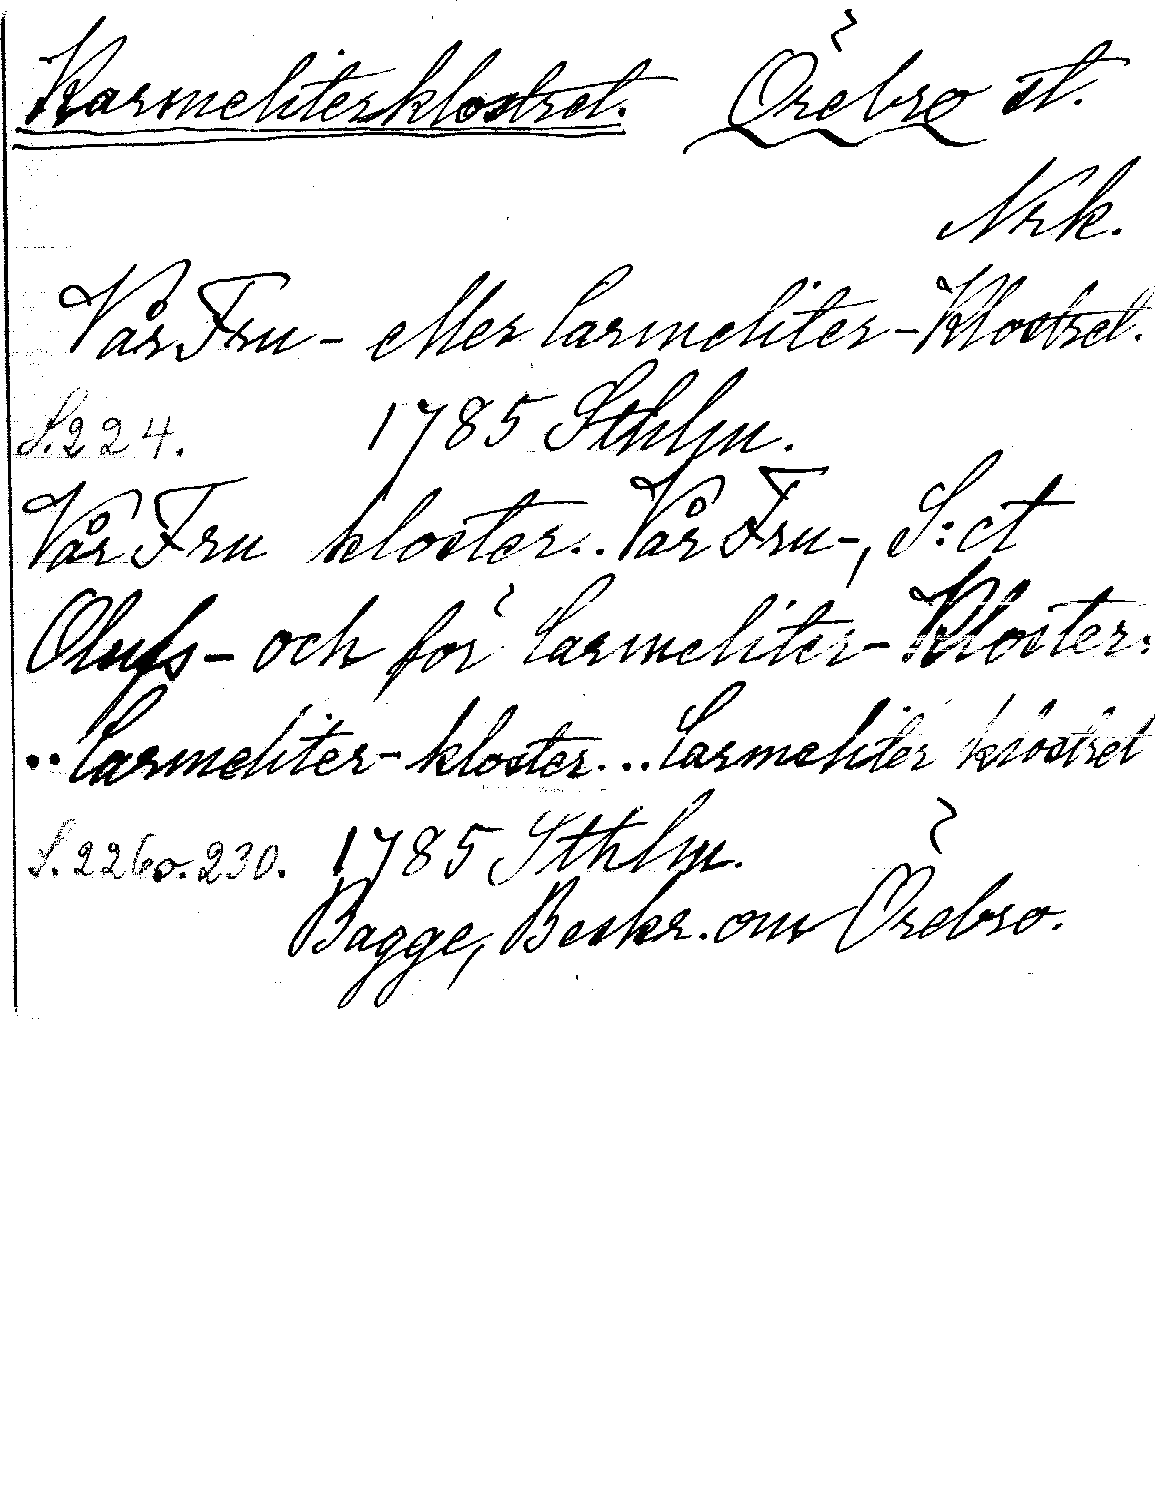 Karmeliterklostret. Örebro st.
Nrk.
Vår Fru - eller Carmeliter - Klostret.
S. 224. 1785 Sthlm.
Vår Fru kloster.. Vår Fru-, S:ct
Olufs - och för Carmeliter - Kloster.
.. Carmeliter - kloster... Carmeliter klostret
S. 226 o. 230. 1785 Sthlm.
Bagge, Beskr. om Örebro.